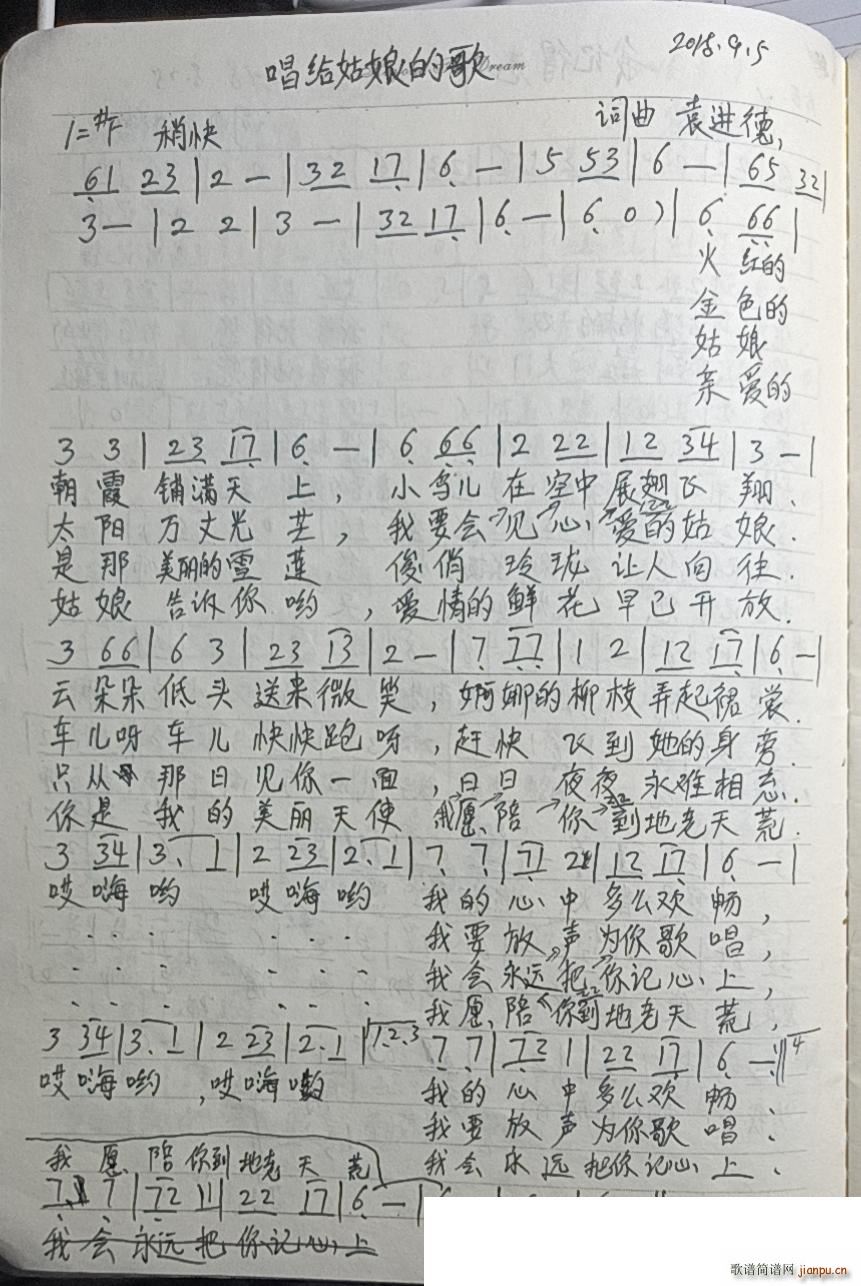 2018.9.5
唱给姑娘的歌
Dream
1=#F 稍快
词曲 袁进德
61 23 | 2 — | 32 17 | 6 — | 5 53 | 6 — | 65 32 |
3 — | 2 2 | 3 — | 32 17 | 6 — | 6 0 ) | 6 66 |
火 红的
金 色的
姑 娘
亲 爱的
3 3 | 23 17 | 6 — | 6 66 | 2 22 | 12 34 | 3 — |
朝霞 铺满天 上, 小鸟儿 在空中 展翅飞 翔.
太阳 万丈光 芒, 我要会见心爱的姑 娘.
是那 美丽的雪 莲 俊俏 玲珑 让人向 往.
姑娘 告诉你 哟, 爱情的鲜花早已开 放.
3 66 | 6 3 | 23 13 | 2 — | 7 77 | 1 2 | 12 17 | 6 — |
云朵朵 低头 送来微 笑, 婀娜的柳枝弄起裙 裳.
车儿呀 车儿 快快跑 呀, 赶快 飞到她的身 旁.
只从 那日见你一 面, 日日 夜夜 永难相 忘.
你是 我的美丽天 使 我愿陪 你到地老天 荒.
3 34 | 3. 1 | 2 23 | 2. 1 | 7 7 | 71 2 | 12 17 | 6 — |
哎嗨哟 哎嗨哟 我的心中 多么欢 畅,
我要放声 为你歌 唱,
我会永远把你记心 上,
我愿陪你到地老天 荒,
3 34 | 3. 1 | 2 23 | 2. 1 | 1.2.3 7 7 | 72 1 | 22 17 | 6 — :|| 4
哎嗨哟, 哎嗨 我的心中 多么欢 畅.
我要放声 为你歌 唱.
我愿陪你到地老天 荒 我会永远把你记心 上.
7 7 | 72 1 | 22 17 | 6 — |
我会永远把你记心上
歌谱简谱网
jianpu.cn